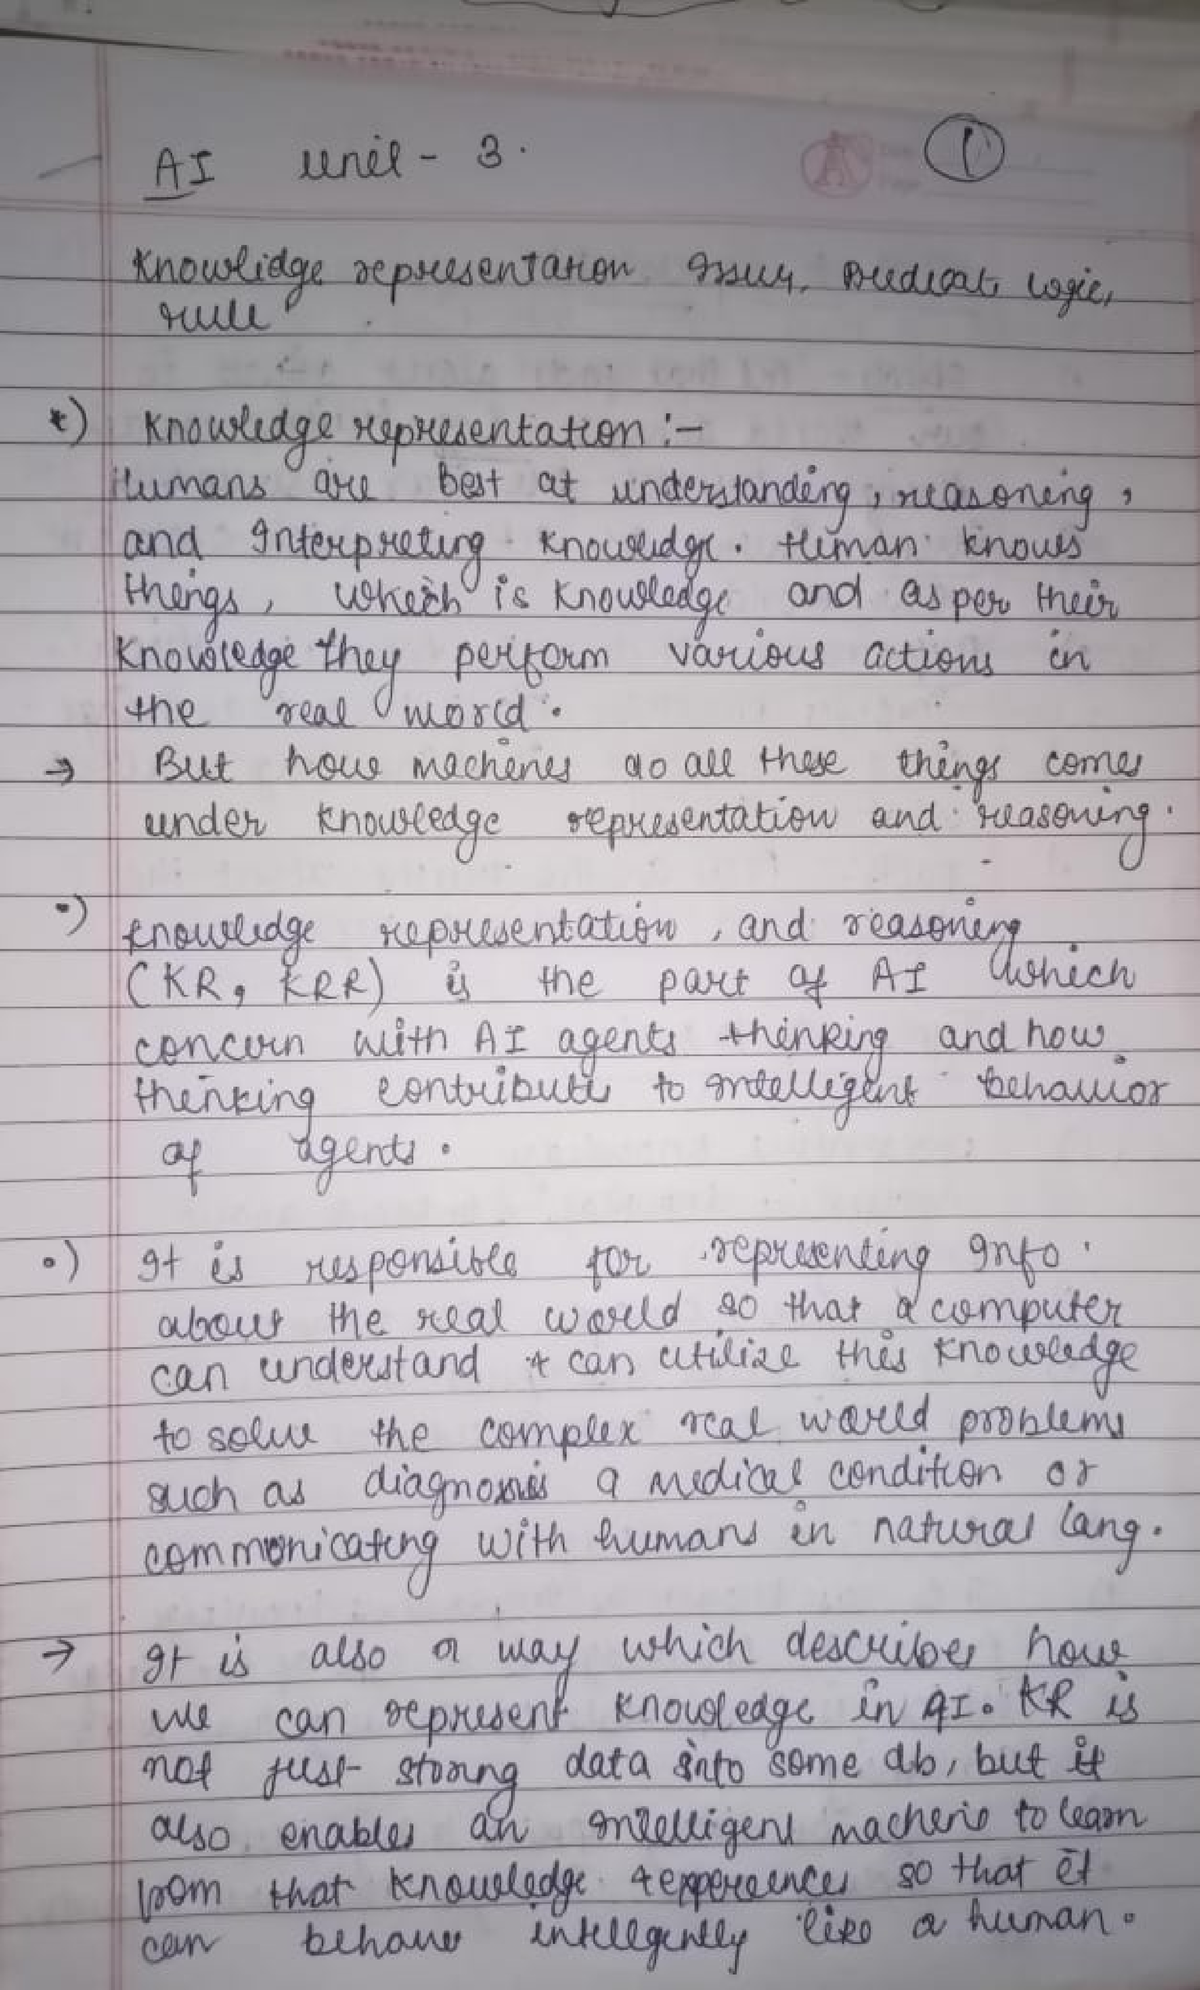 AI unit - 3.
1
Knowlidge representation issues, Predicate logic,
rule
*) Knowledge representation :-
Humans are best at understanding, reasoning,
and Interpreting knowledge. Human knows
things, which is knowledge and as per their
knowledge they perform various actions in
the real world.
→ But how machines do all these things comes
under knowledge representation and reasoning.
•) knowledge representation, and reasoning
(KR, KRR) is the part of AI which
concern with AI agents thinking and how
thinking contribute to intelligent behavior
of agents.
•) It is responsible for representing Info
about the real world so that a computer
can understand + can utilize this knowledge
to solve the complex real world problems
such as diagnosis a medical condition or
communicating with humans in natural lang.
→ It is also a way which describes how
we can represent knowledge in AI. KR is
not just storing data into some db, but it
also enables an intelligent machine to learn
from that knowledge + experiences so that it
can behave intelligently like a human.